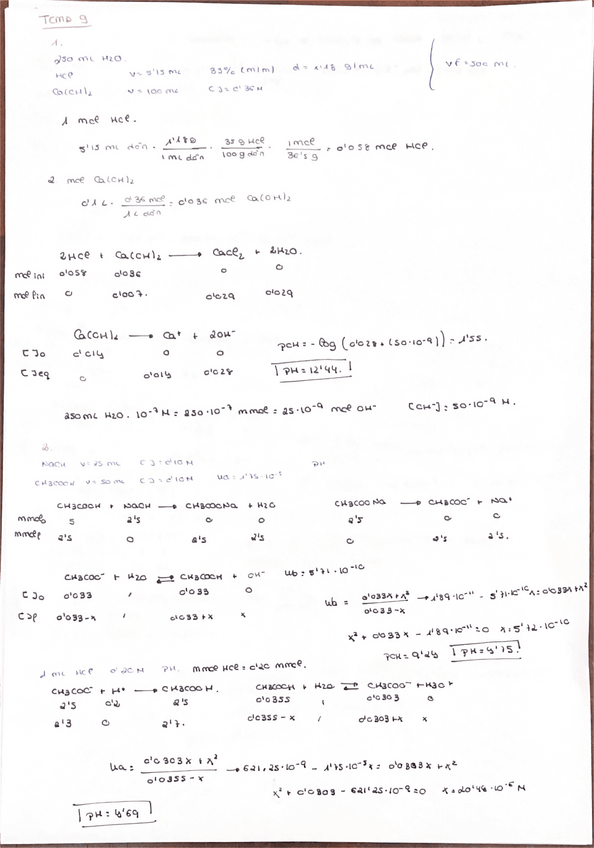 TEMA 9
1.
250 mL H2O.
HCl V = 5'15 mL 35% (m/m) d = 1'18 g/mL Vf = 500 mL.
Ca(OH)2 V = 100 mL [ ] = 0'36 M
1 mol HCl.
5'15 mL dón · 1'18 g / 1 mL dón · 35 g HCl / 100 g dón · 1 mol / 36'5 g = 0'058 mol HCl.
2 mol Ca(OH)2
0'1 L · 0'36 mol / 1 L dón = 0'036 mol Ca(OH)2
2HCl + Ca(OH)2 → CaCl2 + 2H2O.
mol ini 0'058 0'036 0 0
mol fin 0 0'007. 0'029 0'029
Ca(OH)2 → Ca+ + 2OH-
[ ]o 0'014 0 0
[ ]eq 0 0'014 0'028
pOH = - log (0'028 + (50·10^-9)) = 1'55.
pH = 12'44.
250 mL H2O · 10^-7 M = 250·10^-7 mmol = 25·10^-9 mol OH- [OH-] = 50·10^-9 M.
2.
NaOH V = 25 mL [ ] = 0'10 M pH
CH3COOH V = 50 mL [ ] = 0'10 M Ka = 1'75·10^-5
CH3COOH + NaOH → CH3COONa + H2O CH3COONa → CH3COO- + Na+
mmolo 5 2'5 0 0 2'5 0 0
mmolf 2'5 0 2'5 2'5 0 2'5 2'5.
CH3COO- + H2O ⇌ CH3COOH + OH- Kb = 5'71·10^-10
[ ]o 0'033 , 0'033 0
[ ]f 0'033-x , 0'033+x x
Kb = 0'033x + x² / 0'033-x → 1'89·10^-11 - 5'71·10^-10 x = 0'033x + x²
x² + 0'033x - 1'89·10^-11 = 0 x = 5'72·10^-10
pOH = 9'24 pH = 4'75
1 mL HCl 0'20 M pH. mmol HCl = 0'20 mmol.
CH3COO- + H+ → CH3COOH. CH3COOH + H2O ⇌ CH3COO- + H3O+
2'5 0'2 2'5 0'0355 , 0'0303 0
2'3 0 2'7. 0'0355-x , 0'0303+x x
Ka = 0'0303x + x² / 0'0355-x → 621,25·10^-9 - 1'75·10^-5 x = 0'0303x + x²
x² + 0'0303 - 621'25·10^-9 = 0 x = 20'49·10^-6 M
pH = 4'69